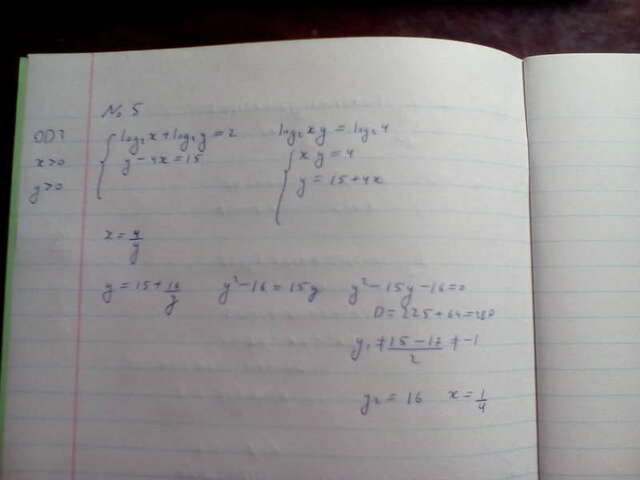 № 5
ОДЗ
x>0
y>0
log₂x+log₂y=2
y-4x=15
log₂xy=log₂4
xy=4
y=15+4x
x=4/y
y=15+16/y y²-16=15y y²-15y-16=0
D=225+64=289
y₁≠(15-17)/2≠-1
y₂=16 x=1/4